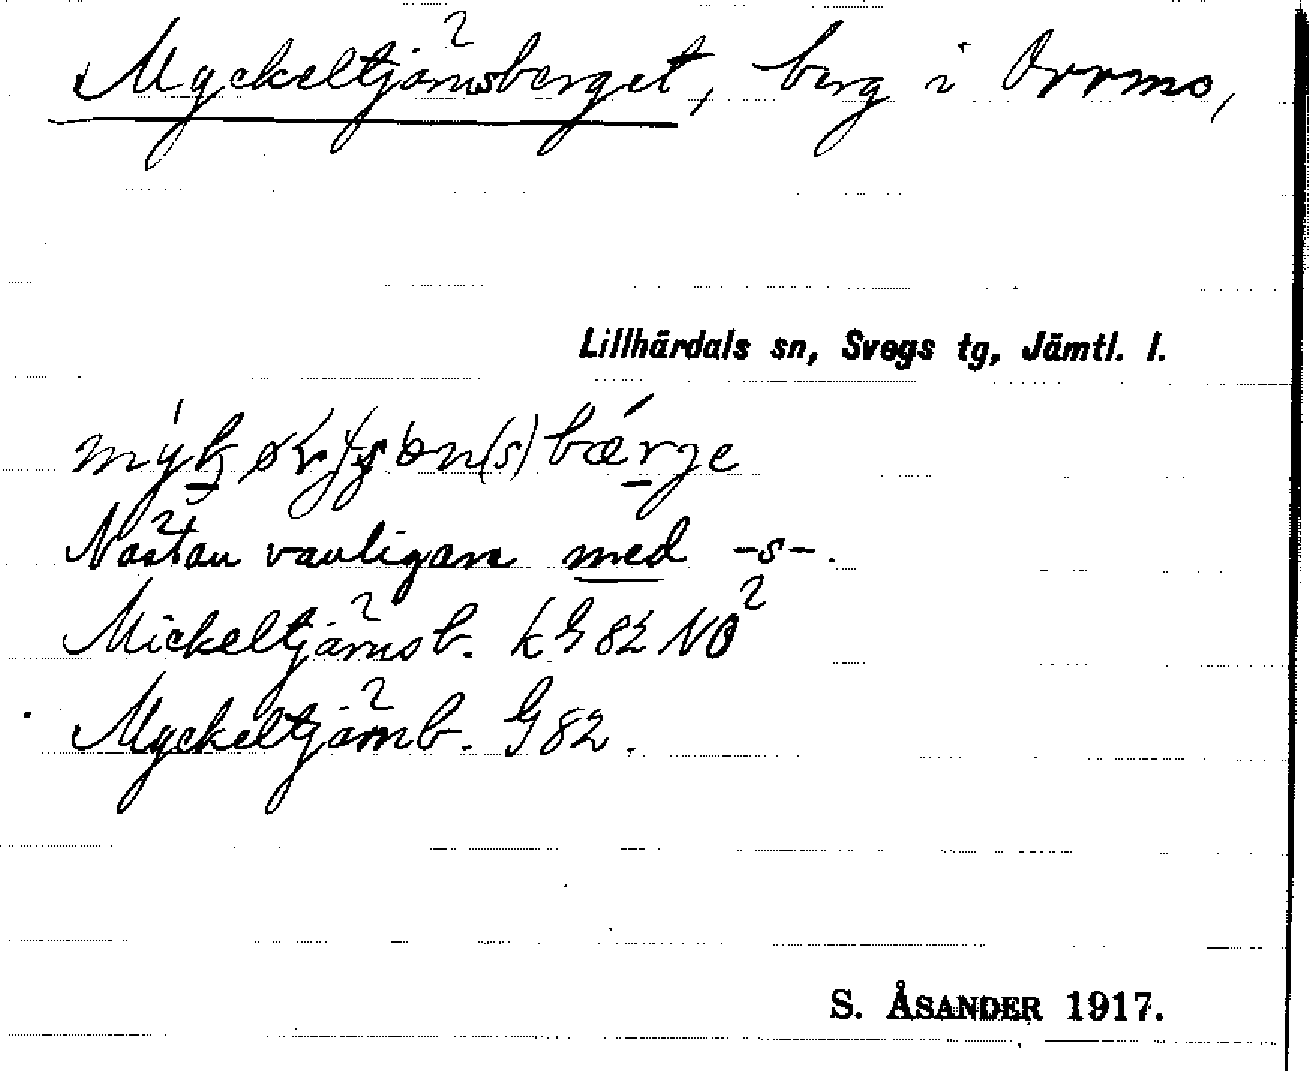 Myckeltjärnsberget, berg i Orrmo,
Lillhärdals sn, Svegs tg, Jämtl. l.
Nästan vanligare med -s-.
Mickeltjärnsb. k G 82 NO²
Myckeltjärnb. G 82.
S. ÅSANDER 1917.